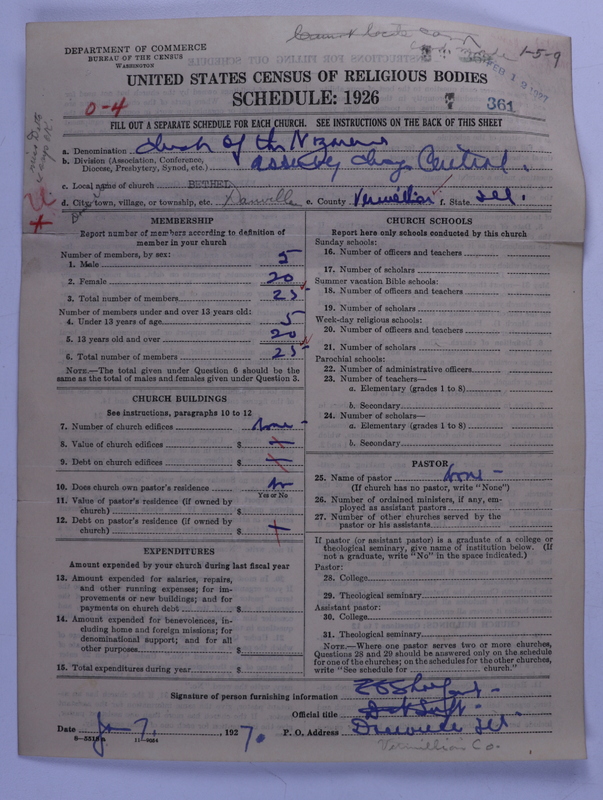 1-5-9
DEPARTMENT OF COMMERCE
BUREAU OF THE CENSUS
WASHINGTON
FEB 19 1927
UNITED STATES CENSUS OF RELIGIOUS BODIES
SCHEDULE: 1926
0-4
361
FILL OUT A SEPARATE SCHEDULE FOR EACH CHURCH. SEE INSTRUCTIONS ON THE BACK OF THIS SHEET
a. Denomination Church of the Nazarene
b. Division (Association, Conference, Diocese, Presbytery, Synod, etc.) Central
c. Local name of church BETHEL
d. City, town, village, or township, etc. Danville e. County Vermillion f. State Ill.
MEMBERSHIP
Report number of members according to definition of
member in your church
Number of members, by sex:
1. Male 5
2. Female 20
3. Total number of members 25
Number of members under and over 13 years old:
4. Under 13 years of age 5
5. 13 years old and over 20
6. Total number of members 25
NOTE.—The total given under Question 6 should be
same as the total of males and females given under Question 3.
CHURCH BUILDINGS
See instructions, paragraphs 10 to 12
7. Number of church edifices None
8. Value of church edifices $
9. Debt on church edifices $
10. Does church own pastor's residence No
Yes or No
11. Value of pastor's residence (if owned by
church) $
12. Debt on pastor's residence (if owned by
church) $
EXPENDITURES
Amount expended by your church during last fiscal year
13. Amount expended for salaries, repairs,
and other running expenses; for im-
provements or new buildings; and for
payments on church debt $
14. Amount expended for benevolences, in-
cluding home and foreign missions; for
denominational support; and for all
other purposes $
15. Total expenditures during year $
CHURCH SCHOOLS
Report here only schools conducted by this church
Sunday schools:
16. Number of officers and teachers
17. Number of scholars
Summer vacation Bible schools:
18. Number of officers and teachers
19. Number of scholars
Week-day religious schools:
20. Number of officers and teachers
21. Number of scholars
Parochial schools:
22. Number of administrative officers
23. Number of teachers—
a. Elementary (grades 1 to 8)
b. Secondary
24. Number of scholars—
a. Elementary (grades 1 to 8)
b. Secondary
PASTOR
25. Name of pastor None
(If church has no pastor, write "None")
26. Number of ordained ministers, if any, em-
ployed as assistant pastors
27. Number of other churches served by the
pastor or his assistants
If pastor (or assistant pastor) is a graduate of a college or
theological seminary, give name of institution below. (If
not a graduate, write "No" in the space indicated.)
Pastor:
28. College
29. Theological seminary
Assistant pastor:
30. College
31. Theological seminary
NOTE.—Where one pastor serves two or more churches,
Questions 28 and 29 should be answered only on the schedule
for one of the churches; on the schedules for the other churches,
write "See schedule for church."
Signature of person furnishing information
Official title
Date Jan 7, 1927. P. O. Address Danville Ill.
8—5515a 11—9064
Vermillion Co.